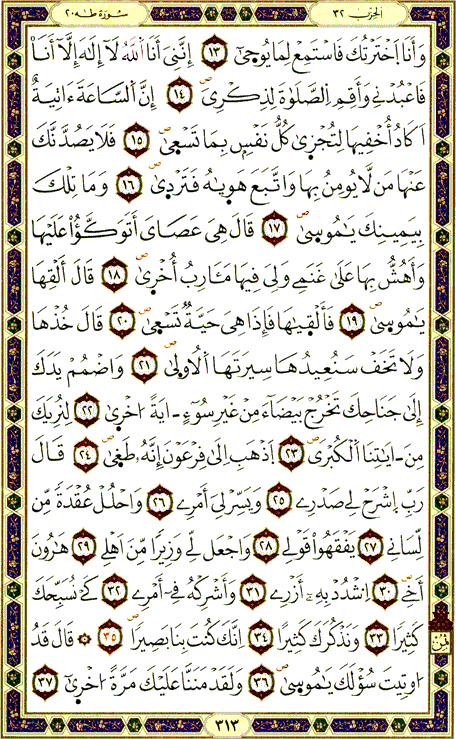 الحزب ٣٢
سورة طه ٢٠
وَأَنَا اَخْتَرْتُكَ فَاسْتَمِعْ لِمَا يُوحَىٰ ١٣ إِنَّنِيَ أَنَا اَللَّهُ لَا إِلَٰهَ إِلَّا أَنَا
فَاعْبُدْنِي وَأَقِمِ اِلصَّلَوٰةَ لِذِكْرِيَ ١٤ إِنَّ اَلسَّاعَةَ ءَاتِيَةٌ
اَكَادُ أُخْفِيهَا لِتُجْزَىٰ كُلُّ نَفْسٍ بِمَا تَسْعَىٰ ١٥ فَلَا يَصُدَّنَّكَ
عَنْهَا مَن لَّا يُومِنُ بِهَا وَاتَّبَعَ هَوَيٰهُ فَتَرْدَىٰ ١٦ وَمَا تِلْكَ
بِيَمِينِكَ يَٰمُوسَىٰ ١٧ قَالَ هِيَ عَصَايَ أَتَوَكَّؤُا عَلَيْهَا
وَأَهُشُّ بِهَا عَلَىٰ غَنَمِي وَلِيَ فِيهَا مَـَٔارِبُ أُخْرَىٰ ١٨ قَالَ أَلْقِهَا
يَٰمُوسَىٰ ١٩ فَأَلْقَيٰهَا فَإِذَا هِيَ حَيَّةٌ تَسْعَىٰ ٢٠ قَالَ خُذْهَا
وَلَا تَخَفْ سَنُعِيدُهَا سِيرَتَهَا اَلُاولَىٰ ٢١ وَاضْمُمْ يَدَكَ
إِلَىٰ جَنَاحِكَ تَخْرُجْ بَيْضَآءَ مِنْ غَيْرِ سُوٓءٍ ـ ايَةً اخْرَىٰ ٢٢ لِنُرِيَكَ
مِنَ ـ ايَٰتِنَا اَلْكُبْرَى ٢٣ اَذْهَبِ اِلَىٰ فِرْعَوْنَ إِنَّهُۥ طَغَىٰ ٢٤ قَالَ
رَبِّ اِشْرَحْ لِي صَدْرِي ٢٥ وَيَسِّرْ لِيَ أَمْرِي ٢٦ وَاحْلُلْ عُقْدَةً مِّن
لِّسَانِي ٢٧ يَفْقَهُوا قَوْلِي ٢٨ وَاجْعَل لِّي وَزِيرًا مِّنَ اَهْلِي ٢٩ هَٰرُونَ
أَخِي ٣٠ اَشْدُدْ بِهِۦٓ أَزْرِي ٣١ وَأَشْرِكْهُ فِيٓ أَمْرِي ٣٢ كَيْ نُسَبِّحَكَ
كَثِيرًا ٣٣ وَنَذْكُرَكَ كَثِيرًا ٣٤ اِنَّكَ كُنتَ بِنَا بَصِيرًا ٣٥ ۞ قَالَ قَدُ
ثمن
اوتِيتَ سُؤْلَكَ يَٰمُوسَىٰ ٣٦ وَلَقَدْ مَنَنَّا عَلَيْكَ مَرَّةً اخْرَىٰ ٣٧
٣١٣